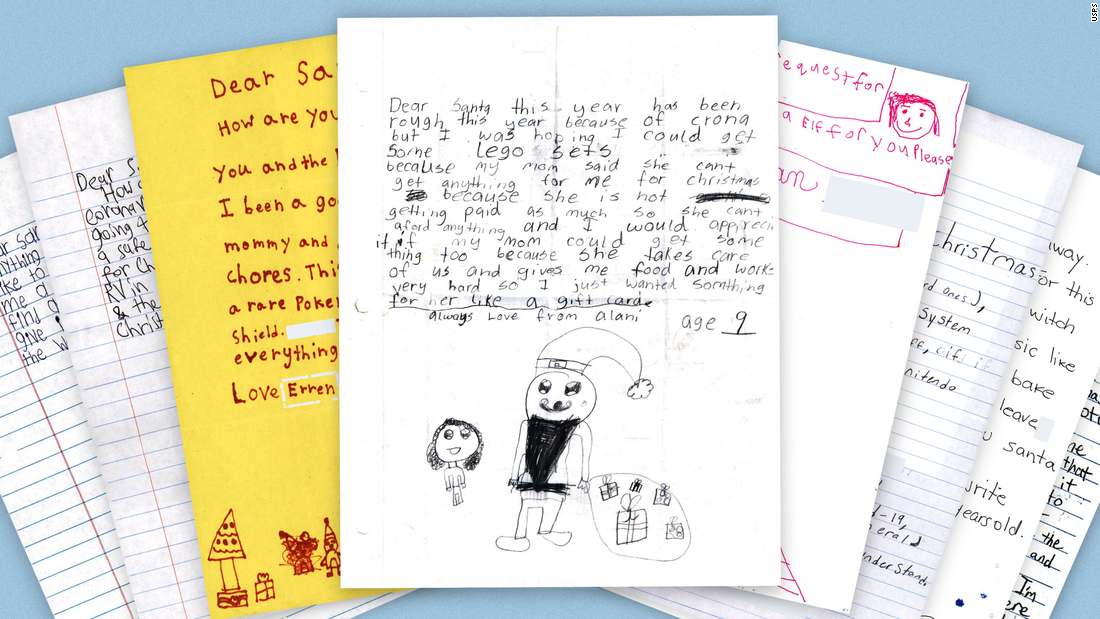 anything
like to
me a
find a
give
the W
Dear S
How a
coronav
going t
a safe
for Ch
RV in
& the
Christ
Dear Sa
How are you
you and the
I been a go
mommy and
chores. This
a rare Poke
Shield.
everything
Love Erren
Dear Santa this year has been
rough this year because of crona
but I was hoping I could get
Some Lego sets
because my mom said she cant
get anything for me for christmas
because she is not
getting paid as much so she cant
aford anything and I would appreci
it if my mom could get some
thing too because she takes care
of us and gives me food and works
very hard so I just wanted somthing
for her like a gift card
always Love from alani
age 9
equest for
a Elf for you Please
an
christmas
rd ones),
System
nitendo
d-19,
erald
understand
lway.
or this
witch
sic like
bake
leave
u santa
write
years old.
ne
that
it
to
the
and
I'm
ere
USPS